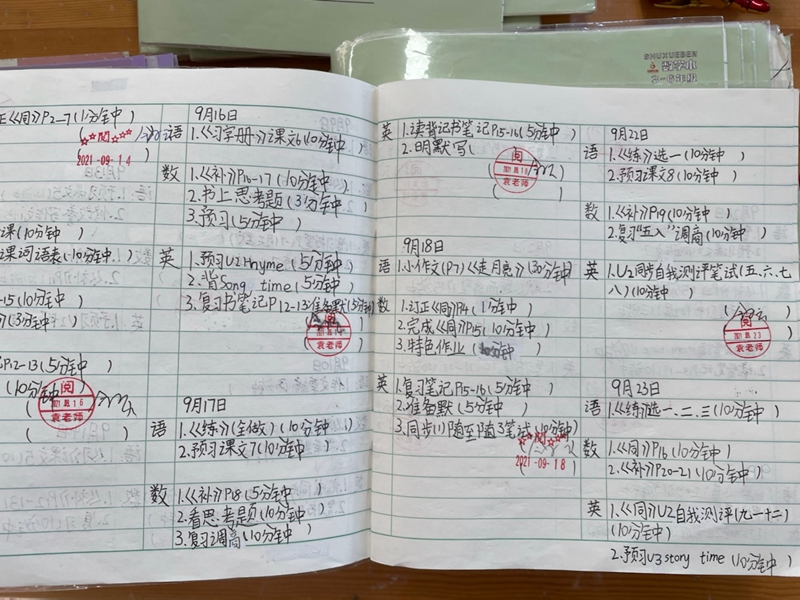 SHUXUEBEN
数学本
3-6年级
正《同》P2-7(1分钟
阅
2021-09-14
课(10分钟
课词语表(10分钟
-15(10分钟
)(3分钟
P12-13(5分钟
(10分钟
阅
袁老师
9月16日
语 1.《习字册》课文6(10分钟
数 1.《补》P16-17(10分钟
2.书上思考题(3分钟
3.预习(5分钟
英 1.预习U2 Rhyme(5分钟
2.背Song time(5分钟
3.复习书笔记P12-13准备默(5分钟
阅
袁老师
9月17日
语 1.《练》(全做)(10分钟
2.预习课文7(10分钟
数 1.《补》P18(5分钟
2.看思考题(10分钟
3.复习调商(10分钟
英 1.读背记书笔记P15-16(5分钟
2.明默写(
阅
袁老师
9月18日
语 1.小作文(P7)《走月亮》(30分钟
数 1.订正《同》P4(1分钟
2.完成《同》P15(10分钟
3.特色作业( 分钟
英 1.复习笔记P15-16(5分钟
2.准备默(5分钟
3.同步(1)随1至随3笔试(10分钟
阅
2021-09-18
9月22日
语 1.《练》选一(10分钟
2.预习课文8(10分钟
数 1.《补》P19(10分钟
2.复习“五入”调商(10分钟
英 1.U2同步自我测评笔试(五、六、七
八)(10分钟
阅
袁老师
9月23日
语 1.《练》选一、二、三(10分钟
数 1.《同》P16(10分钟
2.《补》P20-21(10分钟
英 1.《同》U2自我测评(九-十二)
(10分钟
2.预习U3 story time(10分钟